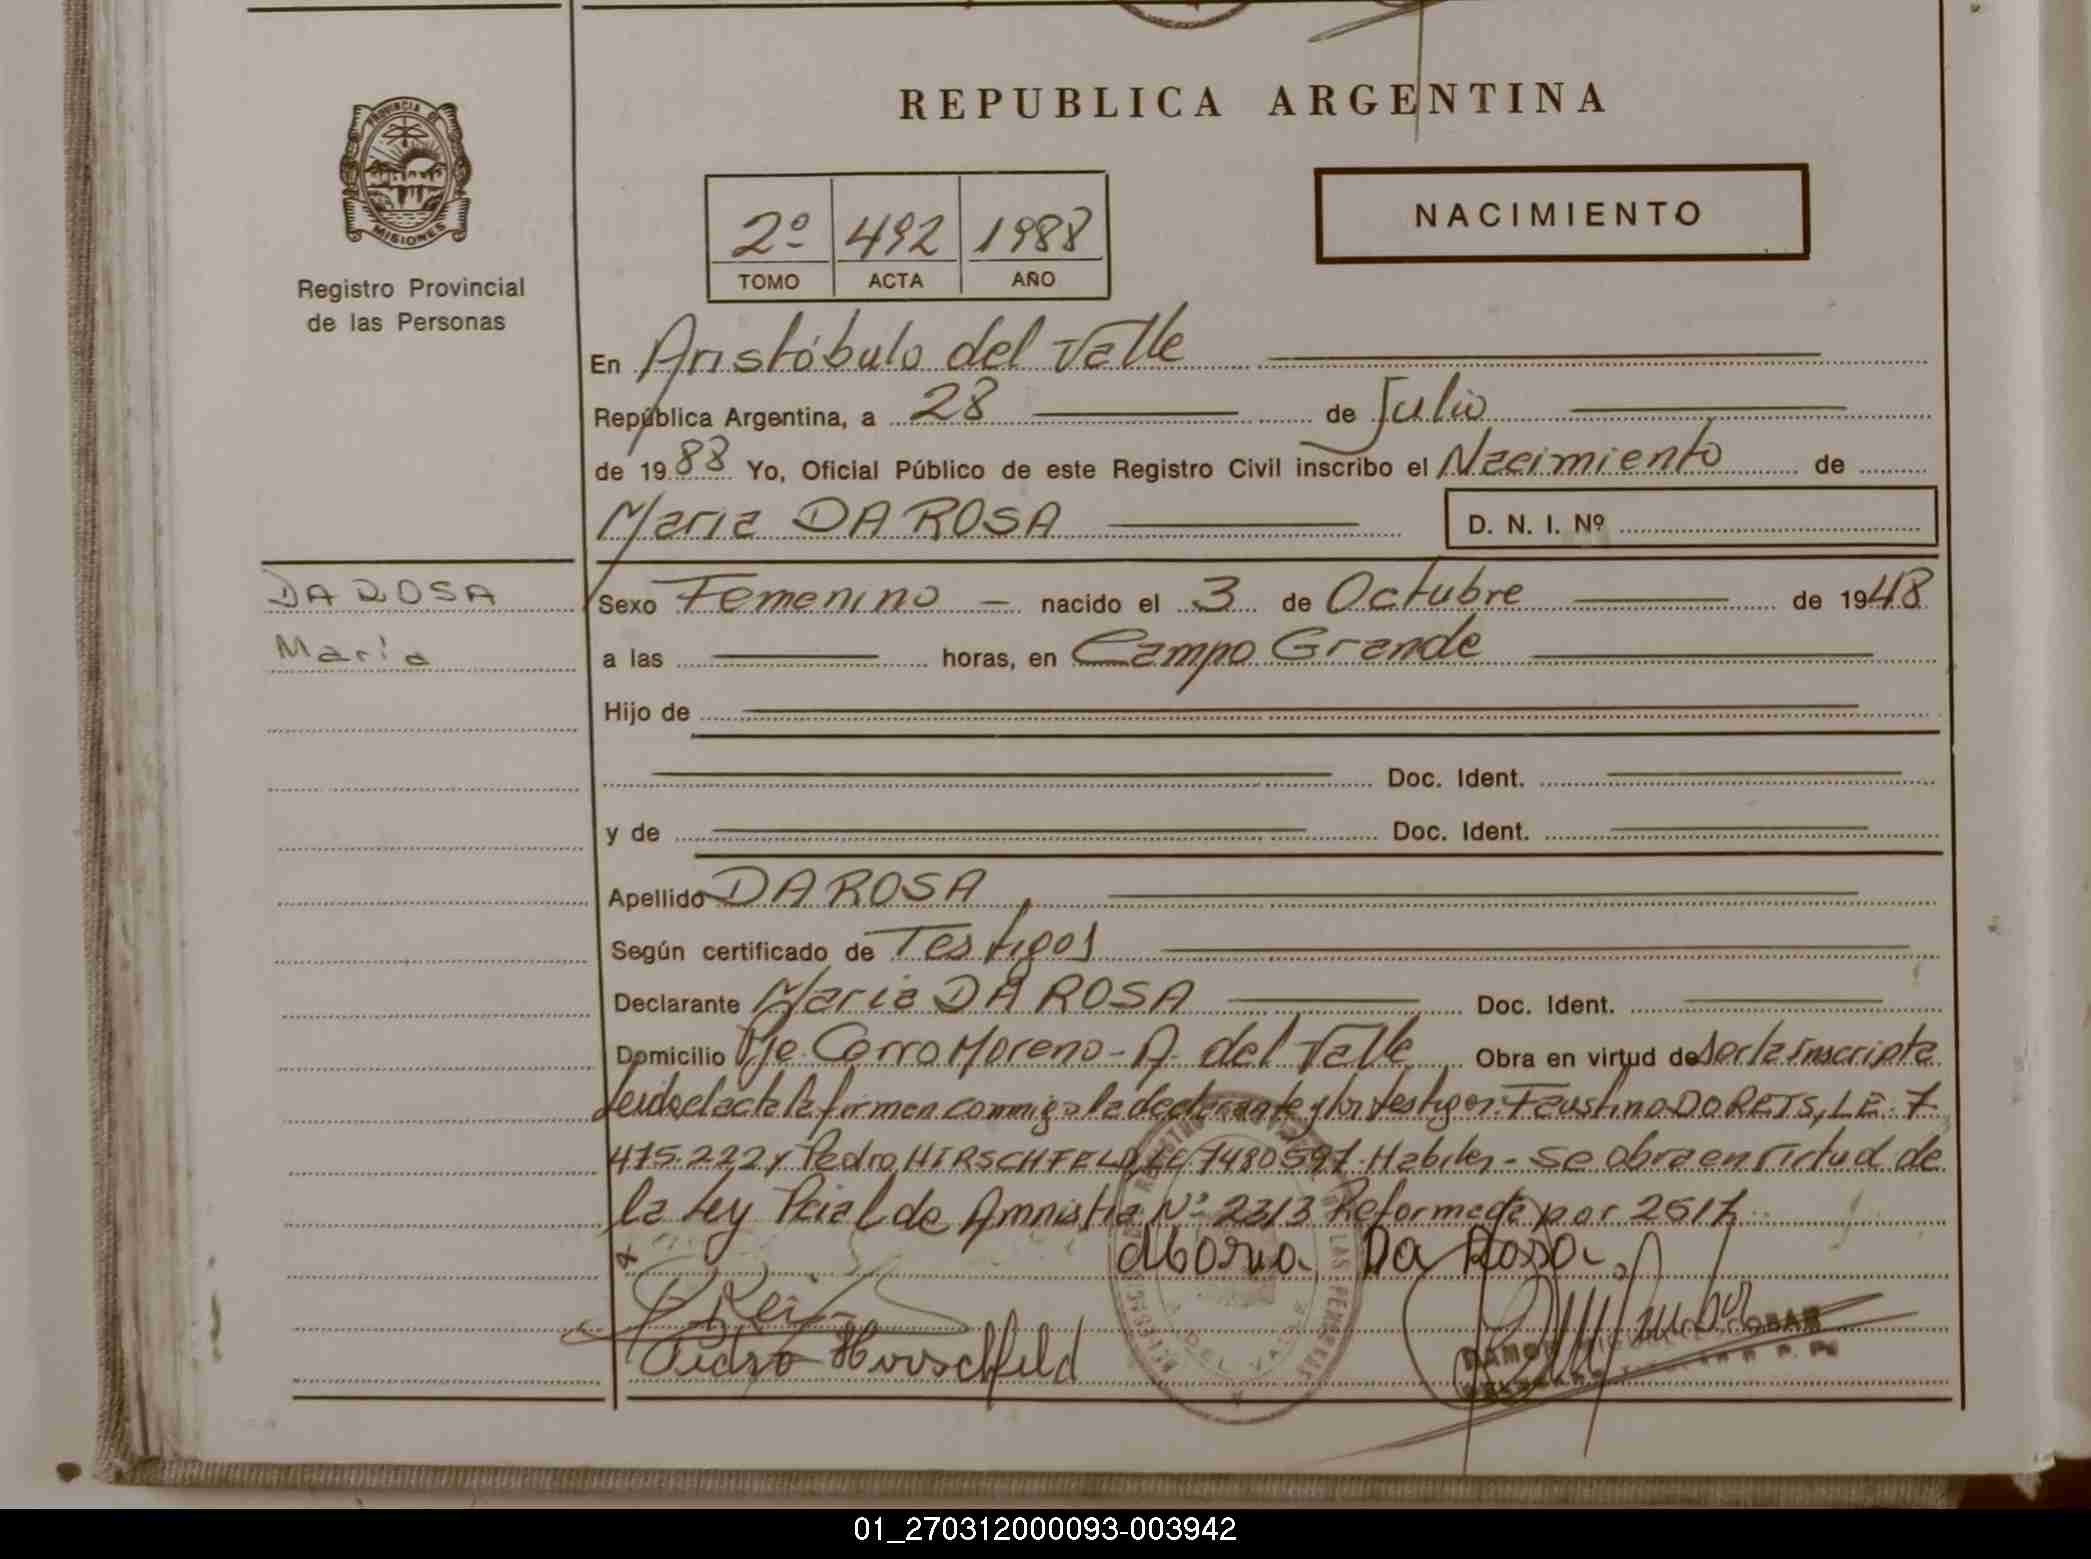 REPUBLICA ARGENTINA
PROVINCIA DE
MISIONES
Registro Provincial
de las Personas
2º 492 1988
TOMO ACTA AÑO
NACIMIENTO
En Aristóbulo del Valle
República Argentina, a 28 de Julio
de 1988 Yo, Oficial Público de este Registro Civil inscribo el Nacimiento de
Maria DA ROSA D. N. I. Nº
DA ROSA
María
Sexo Femenino nacido el 3 de Octubre de 1948
a las horas, en Campo Grande
Hijo de
Doc. Ident.
y de Doc. Ident.
Apellido DA ROSA
Según certificado de Testigos
Declarante Maria DA ROSA Doc. Ident.
Domicilio Pje. Cerro Moreno - A. del Valle Obra en virtud de ser la inscripta
leida el acta la firman conmigo la declarante y los testigos: Faustino DO REIS, L.E. 7
475.222 y Pedro HIRSCHFELD LE 7480597. Habiles - se obra en virtud de
la Ley Pcial de Amnistia Nº 2313 Reformada por 2517
Maria Da Rosa
Pedro Hirschfeld
01_270312000093-003942